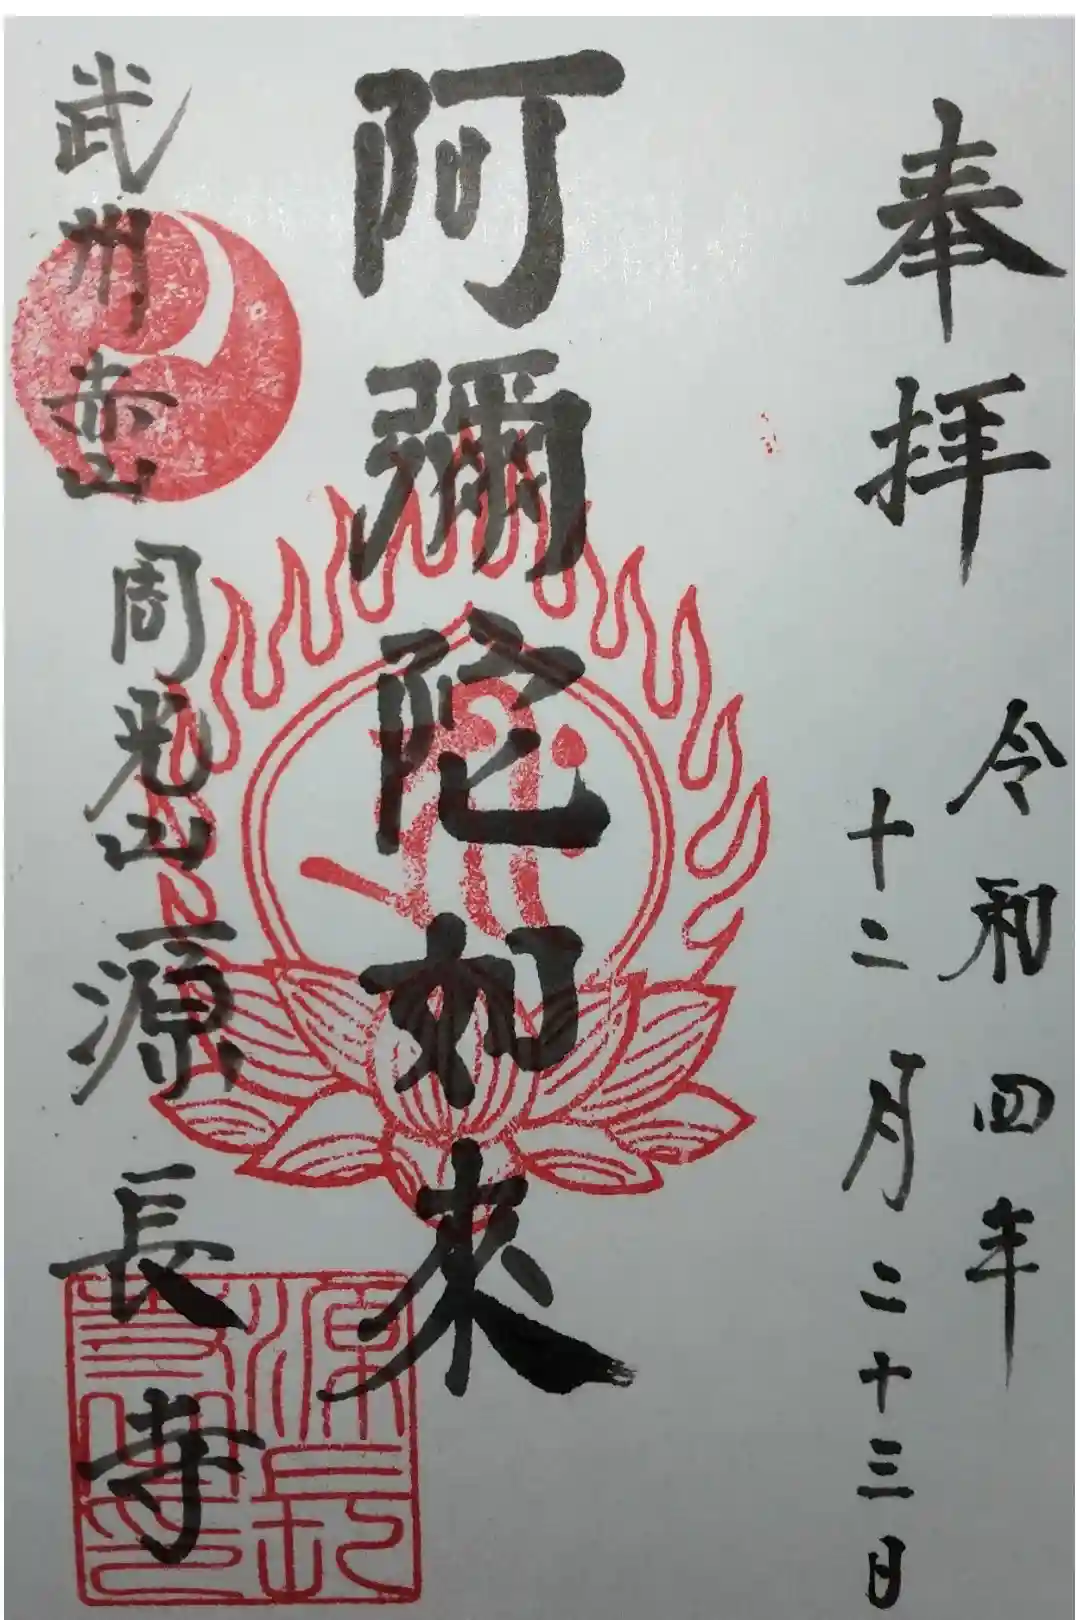 奉拝
令和四年
十二月二十三日
阿彌陀如来
武州赤山
周光山
源長寺